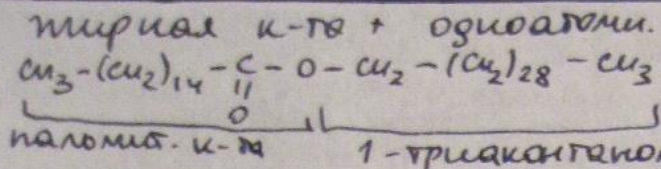 жирная к-та + одноатомн.
CH₃-(CH₂)₁₄-C-O-CH₂-(CH₂)₂₈-CH₃
||
O
пальмит. к-та 1-триаконтанол